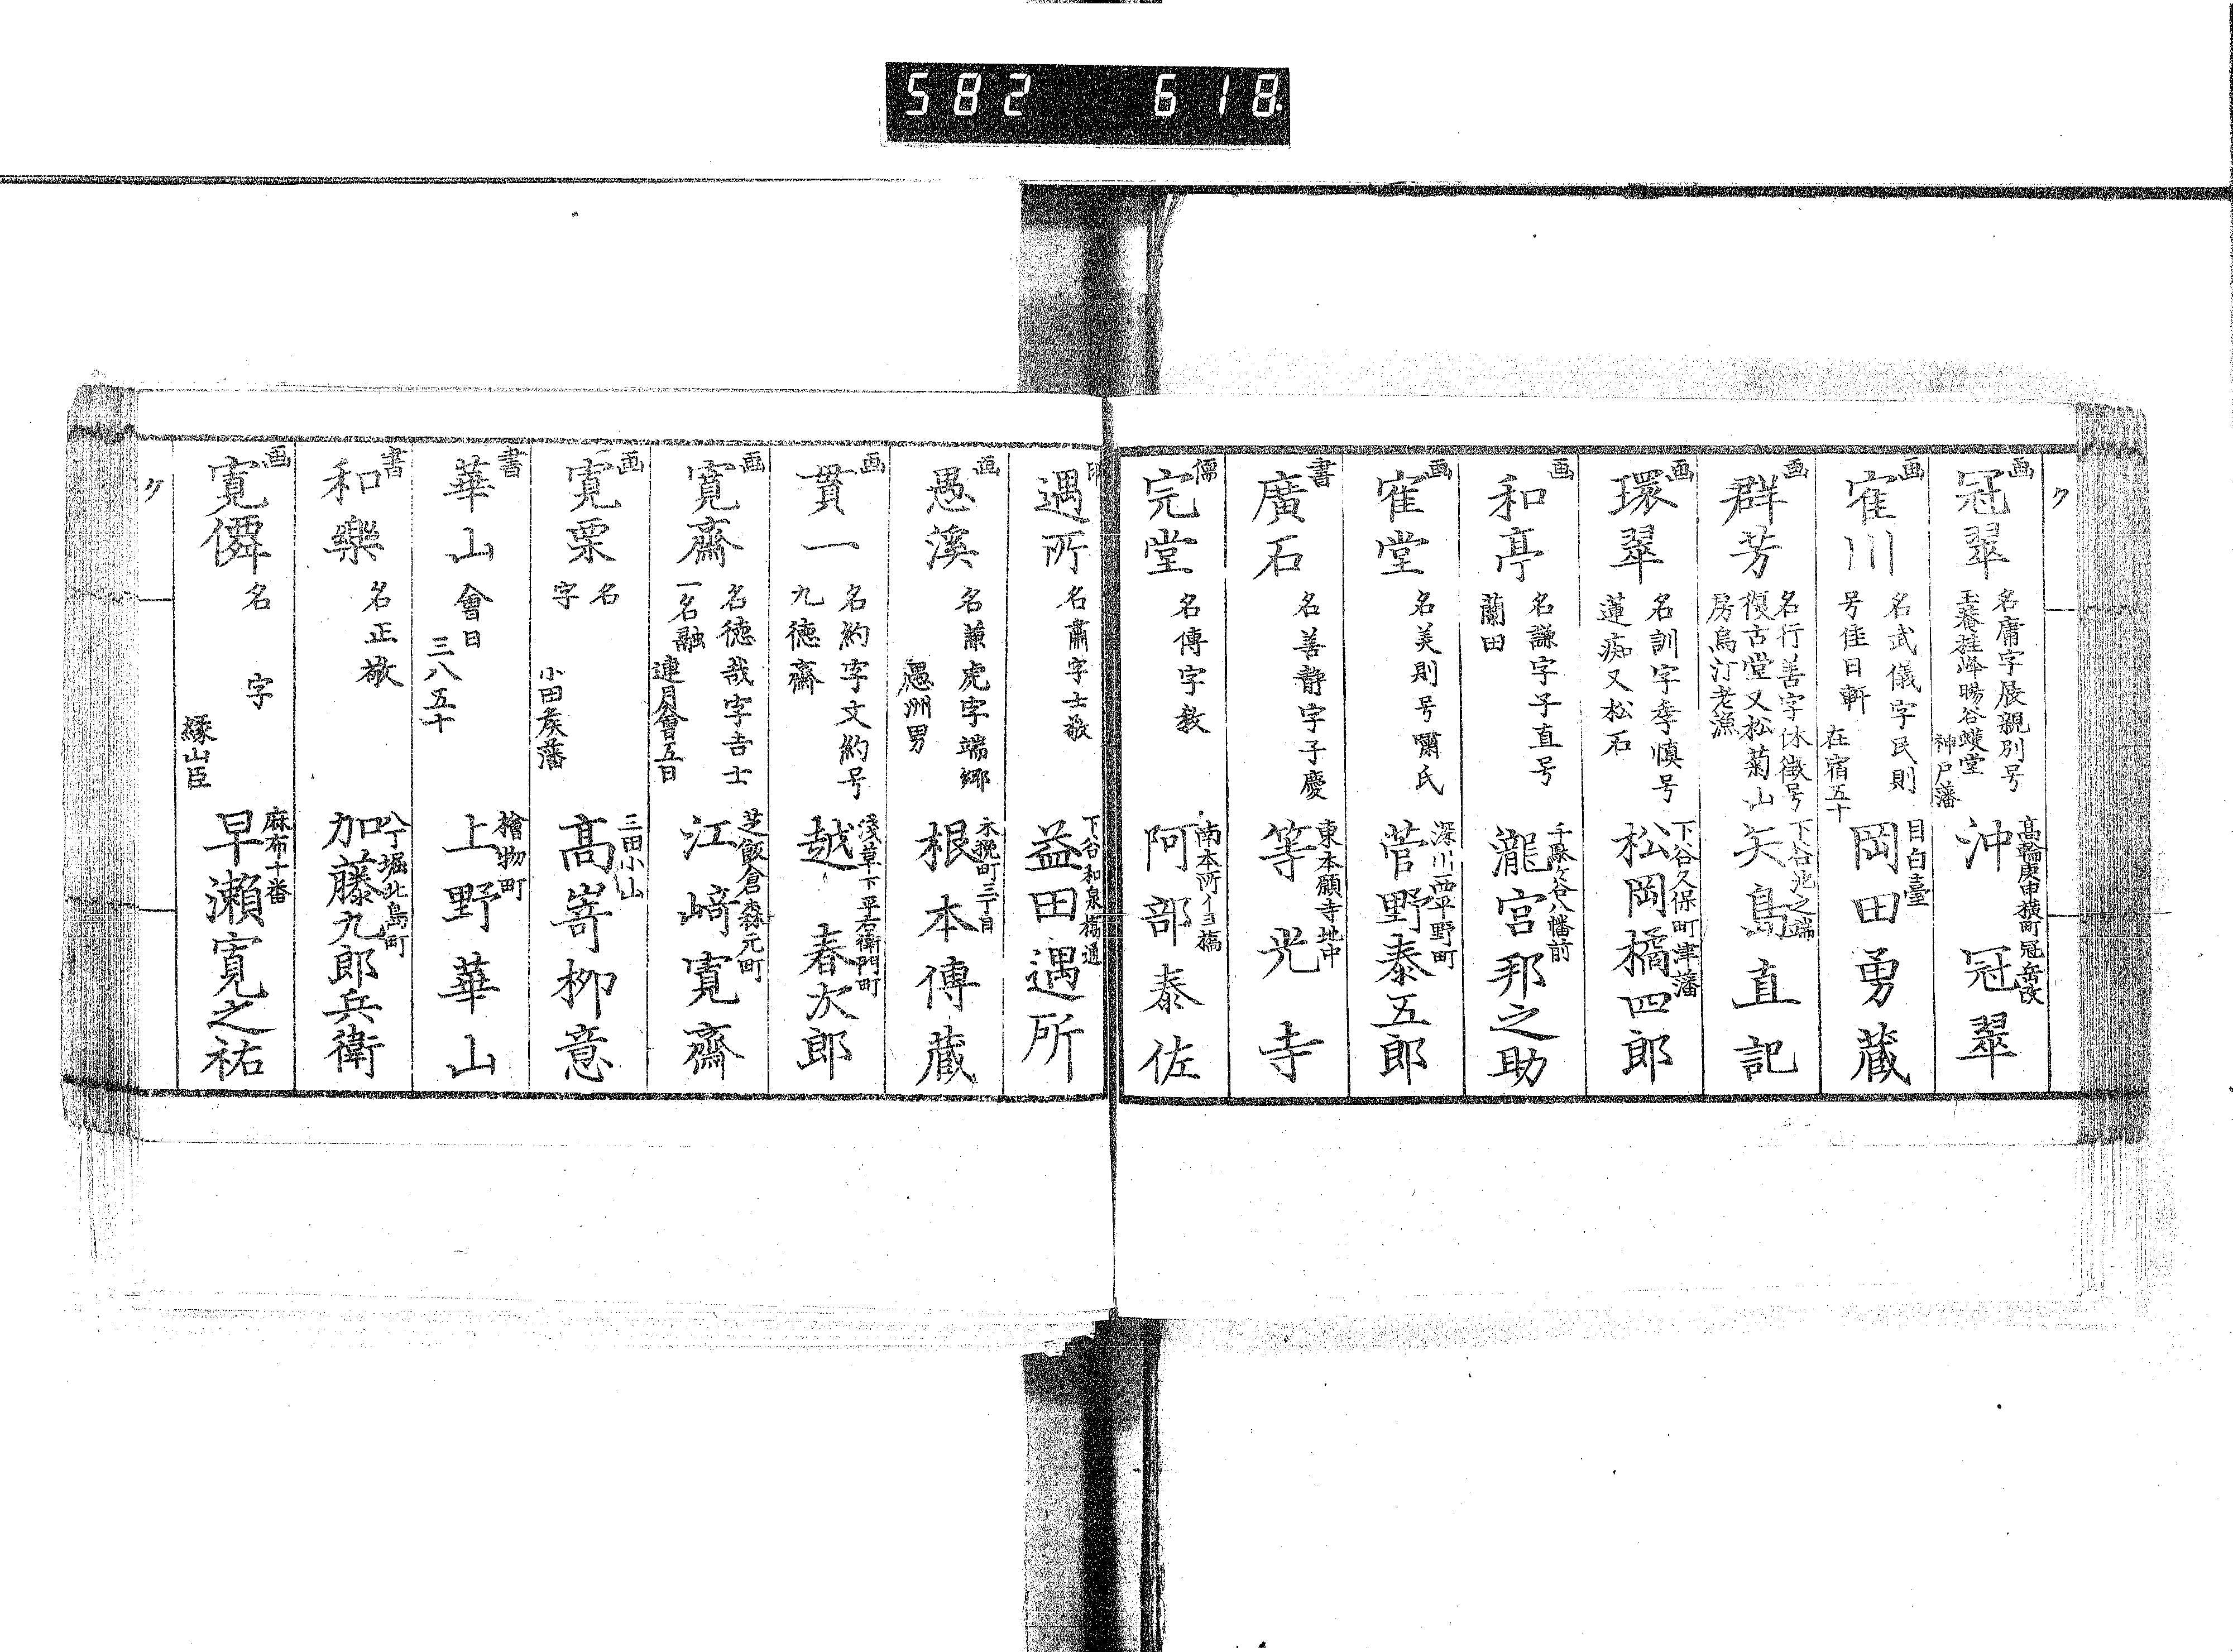 582 618
ク
画
冠翠
名庸字展親別号
玉菴桂峰暘谷蠖堂
神戸藩
高輪庚申横町冠岳改
沖冠翠
画
寉川
名武儀字民則
号佳日軒
在宿五十
目白臺
岡田勇藏
画
群芳
名行善字休徴号
復古堂又松菊山
房烏汀老漁
下谷池之端
矢島直記
画
環翠
名訓字季慎号
蓮痴又松石
下谷久保町津藩
松岡橘四郎
画
和亭
名謙字子直号
蘭田
千駄ヶ谷八幡前
瀧宮邦之助
画
寉堂
名美則号嘯氏
深川西平野町
菅野泰五郎
書
廣石
名善静字子慶
東本願寺地中
等光寺
儒
完堂
名傳字教
南本所イヨ橋
阿部泰佐
印
遇所
名肅字士敬
下谷和泉橋通
益田遇所
画
愚溪
名謙虎字端郷
愚洲男
木挽町三丁目
根本傳藏
画
貫一
名約字文約号
九徳齋
浅草下平右衛門町
越春次郎
画
寛齋
名徳哉字吉士
一名融
連月會五日
芝飯倉森元町
江﨑寛齋
画
寛栗
名
字
小田矦藩
三田小山
髙嵜柳意
書
華山
會日
三八五十
檜物町
上野華山
書
和樂
名正敬
八丁堀北島町
加藤九郎兵衛
画
寛僲
名字
縁山臣
麻布十番
早瀬寛之祐
ク